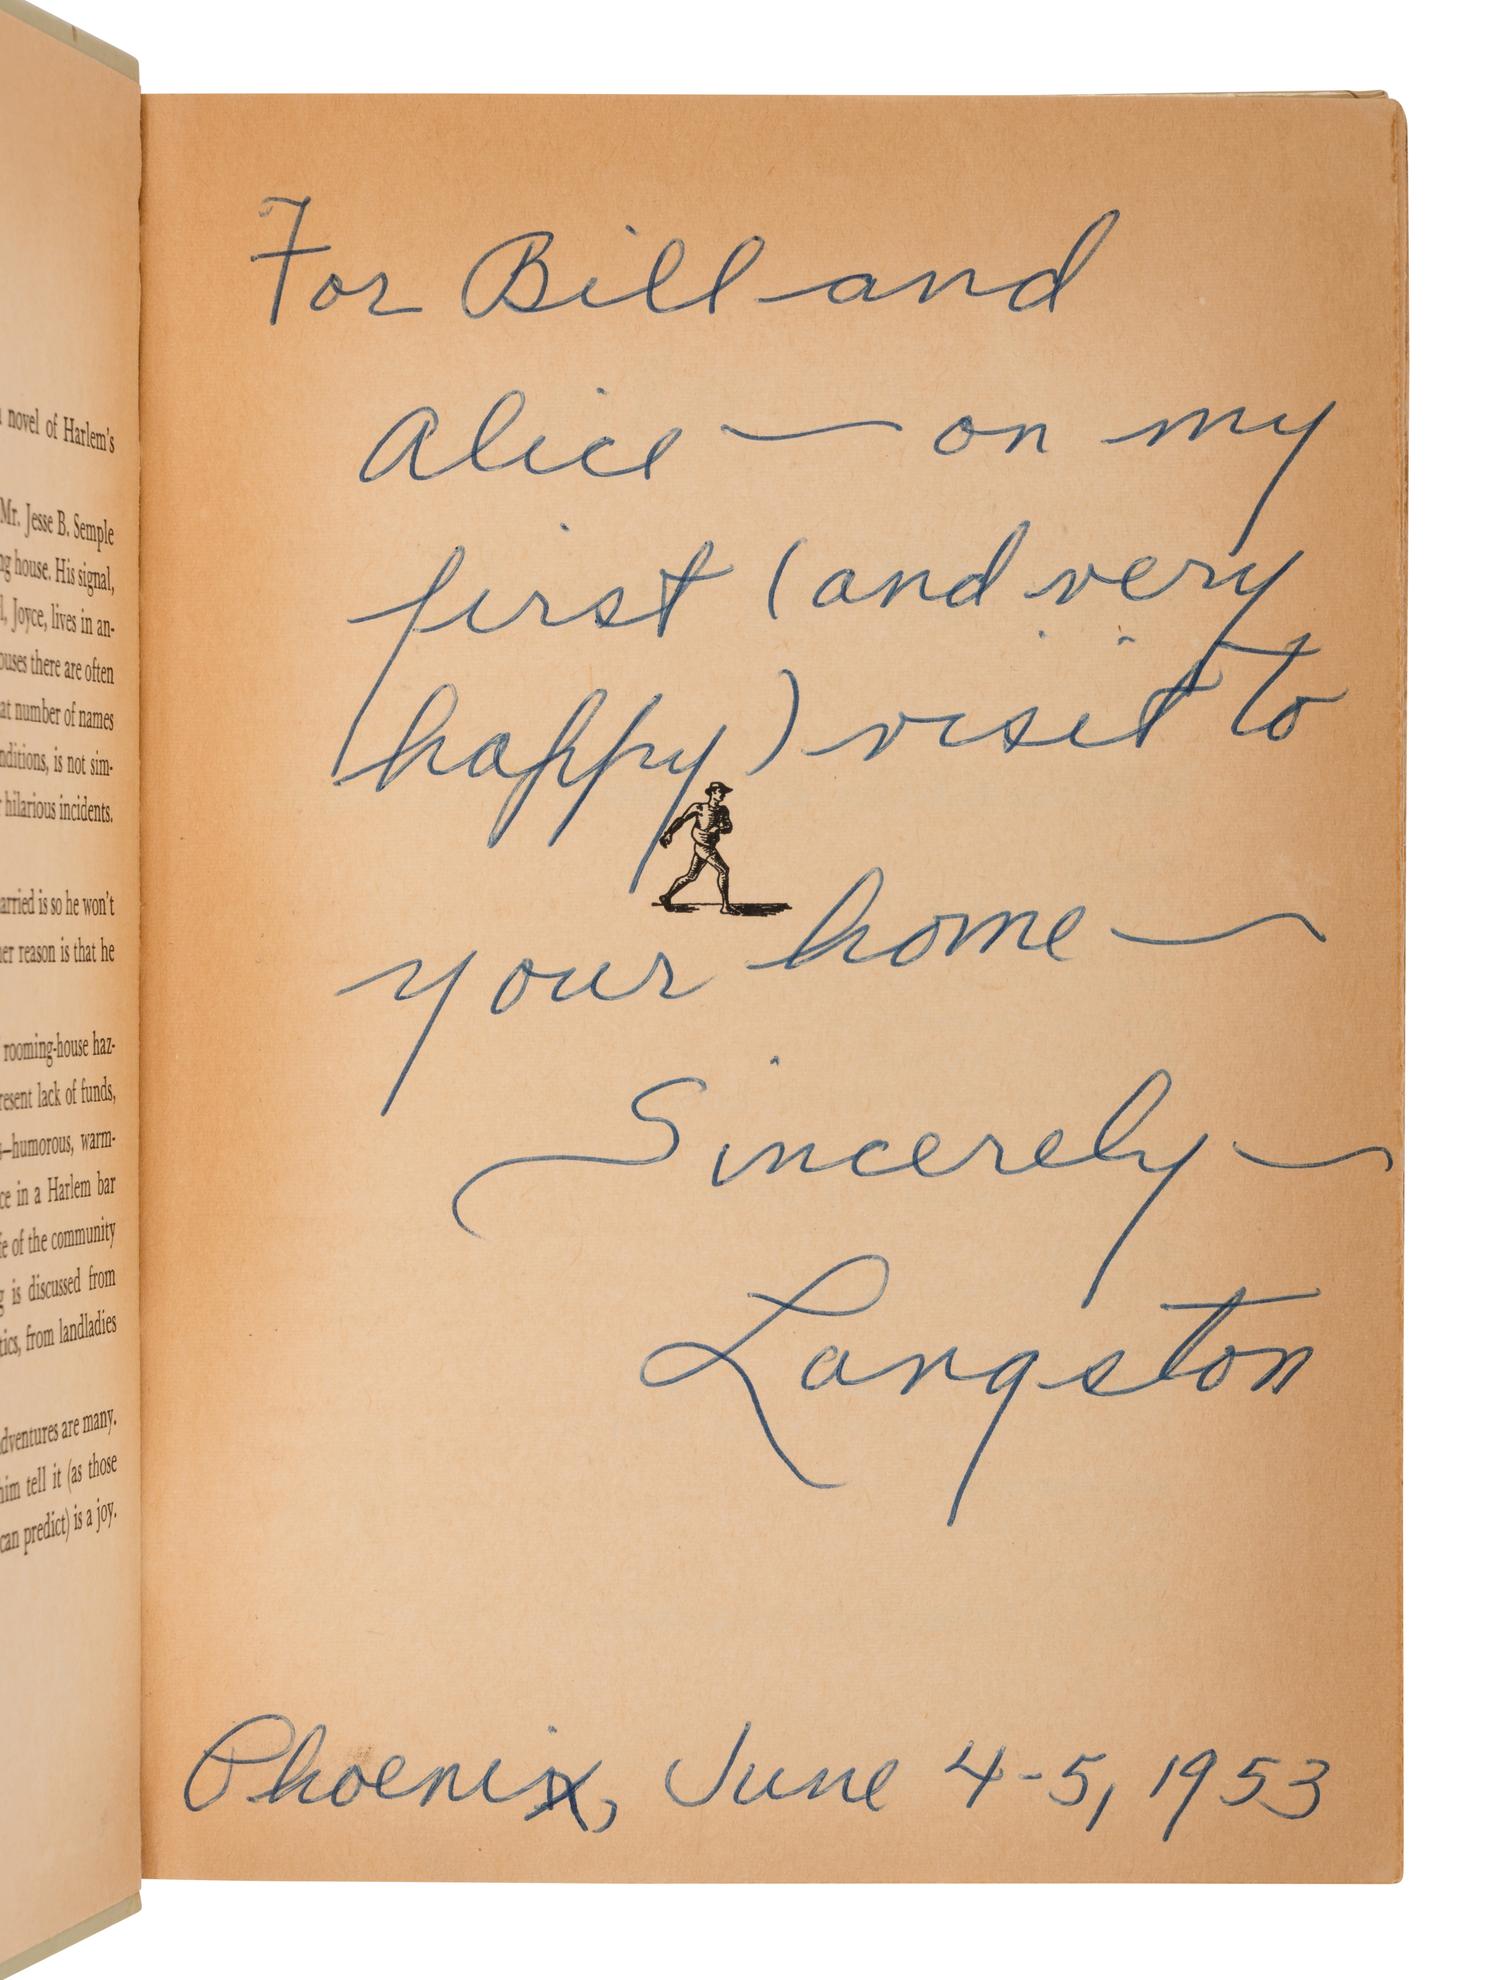 novel of Harlem's
Mr. Jesse B. Semple
house. His signal,
Joyce, lives in an-
there are often
at number of names
is not sim-
hilarious incidents.
arried is so he won't
reason is that he
rooming-house haz-
resent lack of funds,
—humorous, warm-
in a Harlem bar
of the community
is discussed from
from landladies
dventures are many.
him tell it (as those
can predict) is a joy.
For Bill and
Alice — on my
first (and very
happy) visit to
your home —
Sincerely —
Langston
Phoenix, June 4-5, 1953